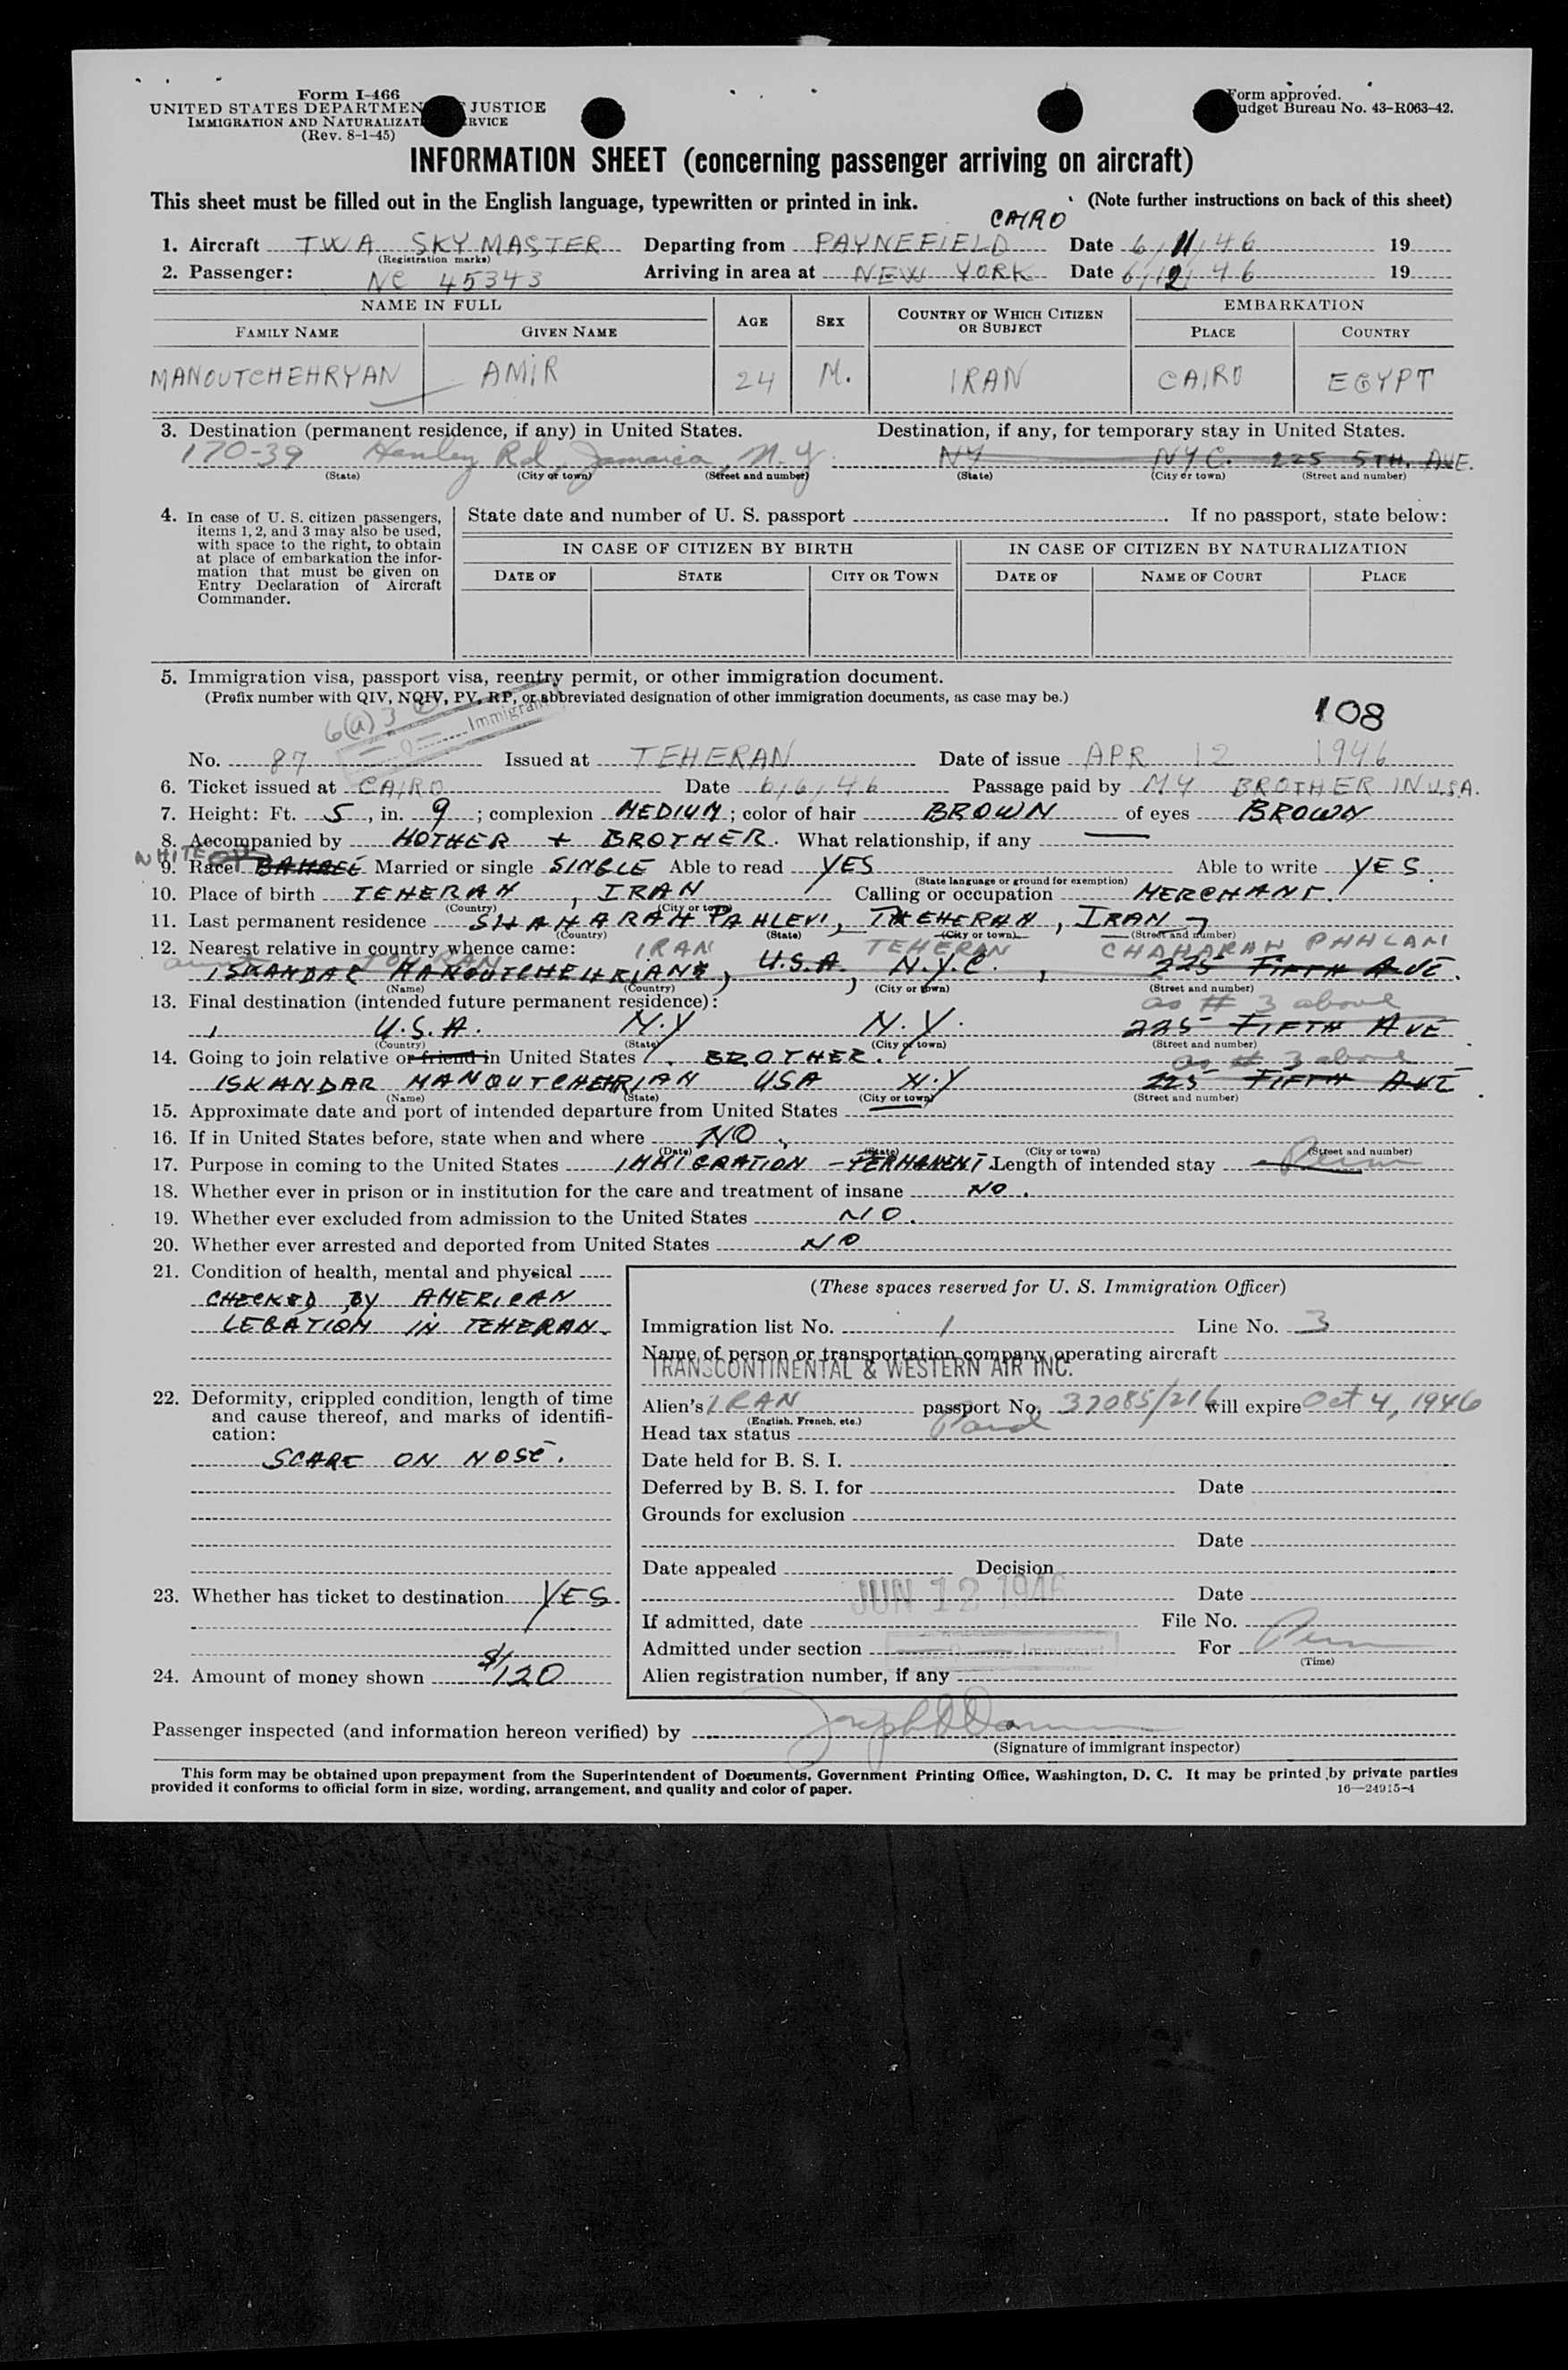 Form I-466
UNITED STATES DEPARTMEN JUSTICE
IMMIGRATION AND NATURALIZAT RVICE
(Rev. 8-1-45)
Form approved.
udget Bureau No. 43-R063-42.
INFORMATION SHEET (concerning passenger arriving on aircraft)
This sheet must be filled out in the English language, typewritten or printed in ink. (Note further instructions on back of this sheet)
CAIRO
1. Aircraft T.W.A. SKYMASTER Departing from PAYNEFIELD Date 6/11/46 19
(Registration marks)
2. Passenger: NC 45343 Arriving in area at NEW YORK Date 6/12/46 19
NAME IN FULL AGE SEX COUNTRY OF WHICH CITIZEN OR SUBJECT EMBARKATION
FAMILY NAME GIVEN NAME PLACE COUNTRY
MANOUTCHEHRYAN AMIR 24 M. IRAN CAIRO EGYPT
3. Destination (permanent residence, if any) in United States. Destination, if any, for temporary stay in United States.
170-39 Henley Rd, Jamaica, N.Y. NY NYC. 225 5TH. AVE.
(State) (City or town) (Street and number) (State) (City or town) (Street and number)
4. In case of U. S. citizen passengers, items 1, 2, and 3 may also be used, with space to the right, to obtain at place of embarkation the information that must be given on Entry Declaration of Aircraft Commander.
State date and number of U. S. passport . If no passport, state below:
IN CASE OF CITIZEN BY BIRTH IN CASE OF CITIZEN BY NATURALIZATION
DATE OF STATE CITY OR TOWN DATE OF NAME OF COURT PLACE
5. Immigration visa, passport visa, reentry permit, or other immigration document.
(Prefix number with QIV, NQIV, PV, RP, or abbreviated designation of other immigration documents, as case may be.)
6(a)3 Immigrant
108
No. 87 Issued at TEHERAN Date of issue APR 12 1946
6. Ticket issued at CAIRO Date 6/6/46 Passage paid by MY BROTHER IN U.S.A.
7. Height: Ft. 5, in. 9; complexion MEDIUM; color of hair BROWN of eyes BROWN
8. Accompanied by MOTHER + BROTHER. What relationship, if any —
WHITE
9. Race Married or single SINGLE Able to read YES Able to write YES.
(State language or ground for exemption)
10. Place of birth TEHERAN, IRAN Calling or occupation MERCHANT.
(Country) (City or town)
11. Last permanent residence SHAHARAH PAHLEVI, TEHERAN, IRAN
(Country) (State) (City or town) (Street and number)
12. Nearest relative in country whence came: IRAN TEHERAN CHAHARAH PAHLAVI
ISKANDAR MANOUTCHEHRIAN, U.S.A., N.Y.C., 225 FIFTH AVE.
(Name) (Country) (City or town) (Street and number)
13. Final destination (intended future permanent residence): as # 3 above
U.S.A. N.Y N.Y. 225 FIFTH AVE
(Country) (State) (City or town) (Street and number)
14. Going to join relative or friend in United States BROTHER. as # 3 above
ISKANDAR MANOUTCHEHRIAN USA N.Y 225 FIFTH AVE.
(Name) (State) (City or town) (Street and number)
15. Approximate date and port of intended departure from United States —
16. If in United States before, state when and where NO.
(Date) (State) (City or town) (Street and number)
17. Purpose in coming to the United States IMMIGRATION - PERMANENT. Length of intended stay Perm
18. Whether ever in prison or in institution for the care and treatment of insane NO.
19. Whether ever excluded from admission to the United States NO.
20. Whether ever arrested and deported from United States NO
21. Condition of health, mental and physical
CHECKED BY AMERICAN
LEGATION IN TEHERAN.
22. Deformity, crippled condition, length of time and cause thereof, and marks of identification:
SCARE ON NOSE.
23. Whether has ticket to destination YES
24. Amount of money shown $120
(These spaces reserved for U. S. Immigration Officer)
Immigration list No. 1 Line No. 3
Name of person or transportation company operating aircraft
TRANSCONTINENTAL & WESTERN AIR INC.
Alien's IRAN passport No. 37085/216 will expire Oct 4, 1946
(English, French, etc.)
Head tax status Paid
Date held for B. S. I.
Deferred by B. S. I. for Date
Grounds for exclusion
Date
Date appealed Decision
JUN 12 1946 Date
If admitted, date File No.
Admitted under section Immigrant For Perm
(Time)
Alien registration number, if any
Passenger inspected (and information hereon verified) by Joseph
(Signature of immigrant inspector)
This form may be obtained upon prepayment from the Superintendent of Documents, Government Printing Office, Washington, D. C. It may be printed by private parties
provided it conforms to official form in size, wording, arrangement, and quality and color of paper. 16—24915-4